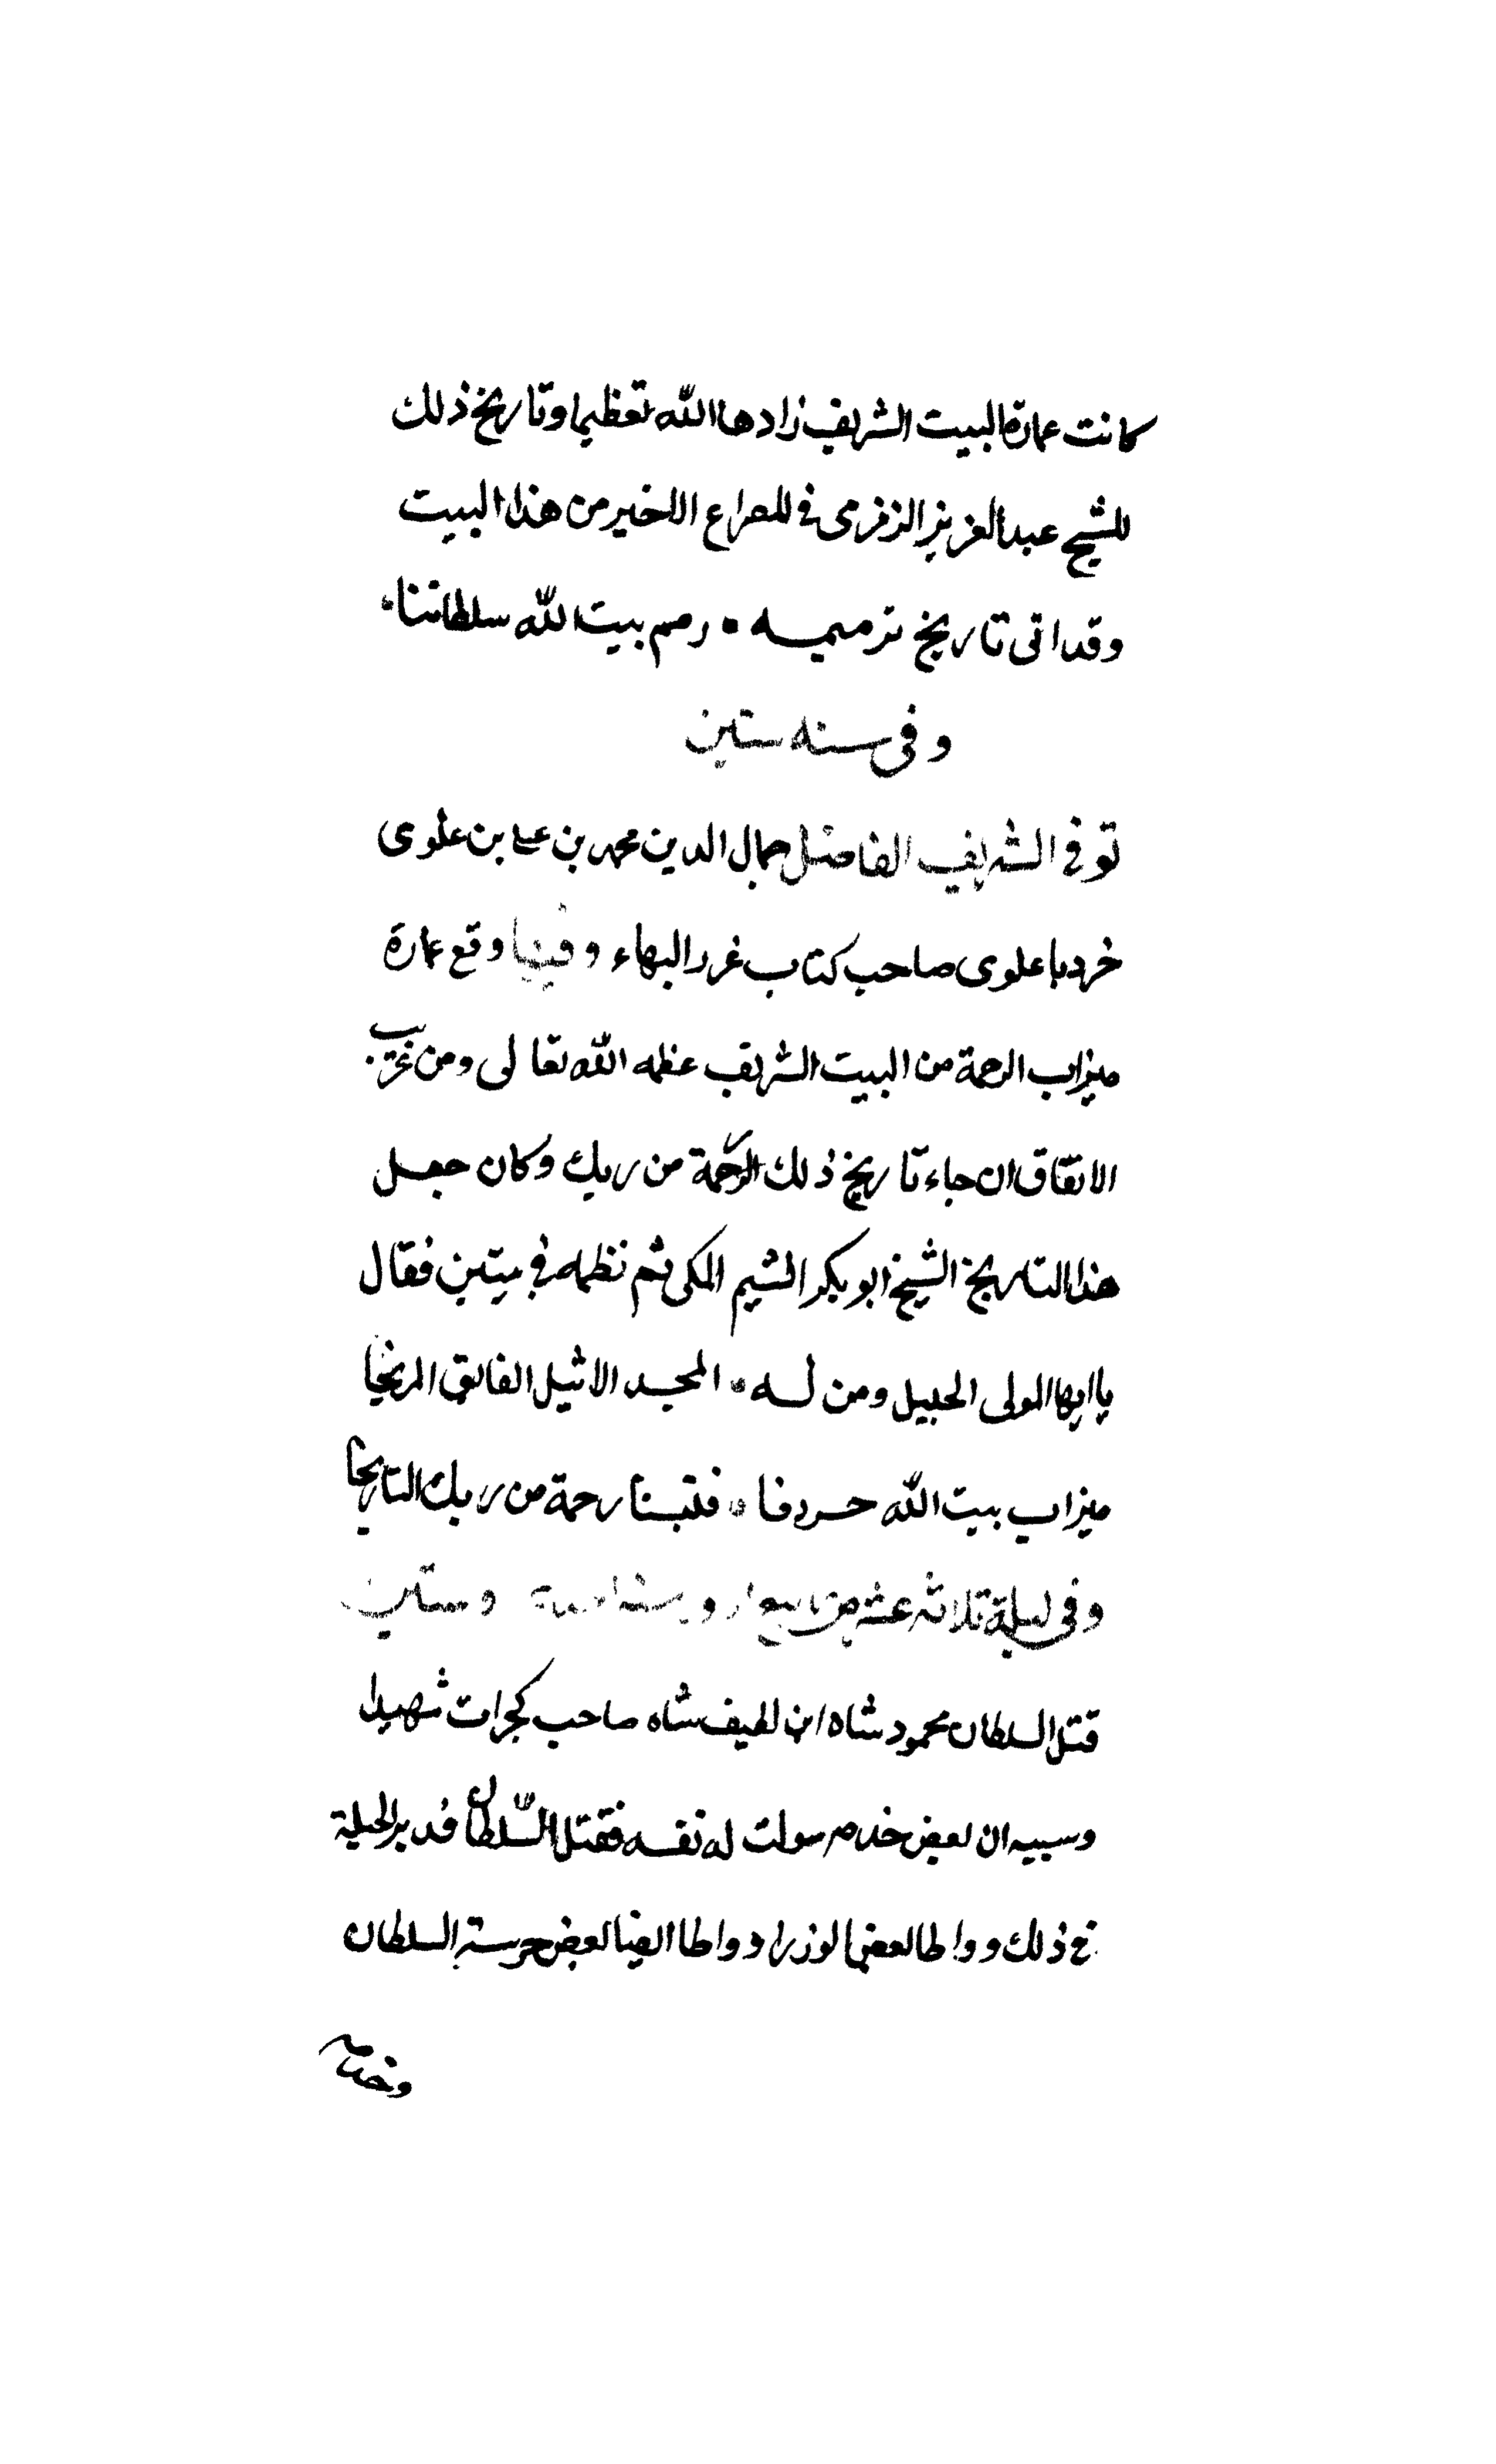 كانت عمارة البيت الشريف زادها الله تعظيما وتاريخ ذلك
للشيخ عبد العزيز الزمزمى في المصراع الاخير من هذا البيت
وقد اتى تاريخ ترميمه • رمم بيت الله سلطاننا
وفي سنه ستين
توفي الشريف الفاضل جمال الدين محمد بن على بن علوى
خرد باعلوى صاحب كتاب غرر البهاء وفيها وقع عمارة
ميزاب الرحمة من البيت الشريف عظمه الله تعالى ومن غريب
الاتفاق ان جاء تاريخ ذلك الرحمة من ربك وكان جعل
هذا التاريخ الشيخ ابو بكر اليتيم المكى ثم نظمه في بيتين فقال
يا ايها المولى الجليل ومن له • المجد الاثيل الفايق المريخا
ميزاب بيت الله حرروفا • فكتبنا رحمة من ربك التاريخا
وفي ليلة ثلاثه عشر من ربيع وستين
قتل السلطان محمود شاه ابن لطيف شاه صاحب كجرات شهيدا
وسببه ان بعض خدمه سولت له نفسه فقتل السلطان فدبر الحيلة
في ذلك وواطا بعض الوزراء وواطا ايضا بعض حرسة السلطان